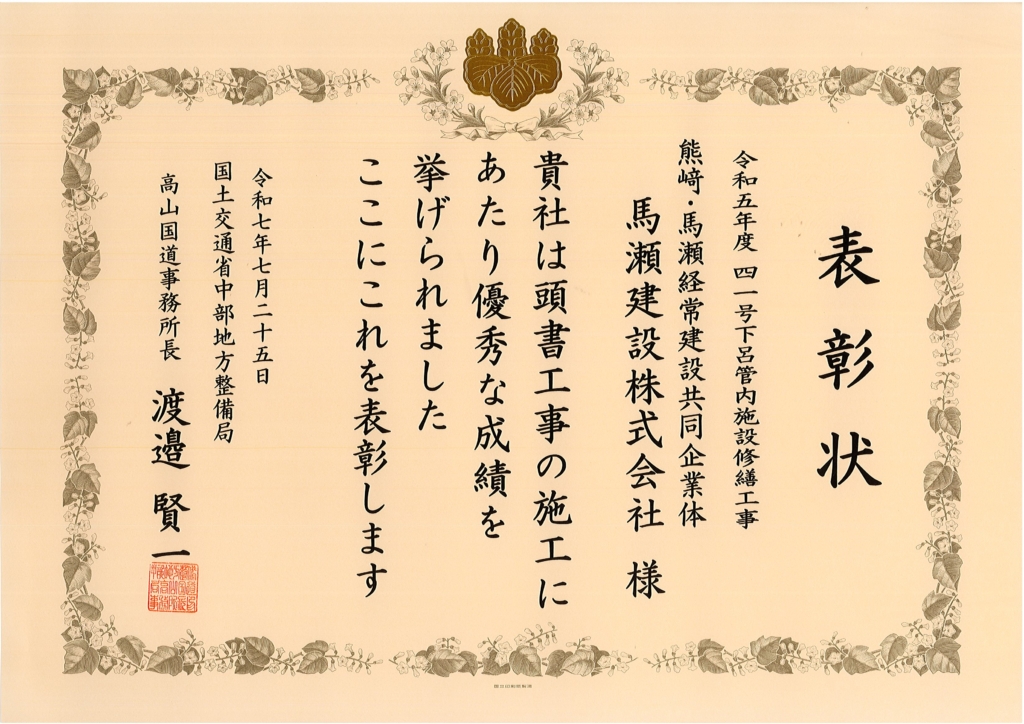 表彰状
令和五年度 四一号下呂管内施設修繕工事
熊﨑・馬瀬経常建設共同企業体
馬瀬建設株式会社 様
貴社は頭書工事の施工に
あたり優秀な成績を
挙げられました
ここにこれを表彰します
令和七年七月二十五日
国土交通省中部地方整備局
高山国道事務所長 渡邉 賢一